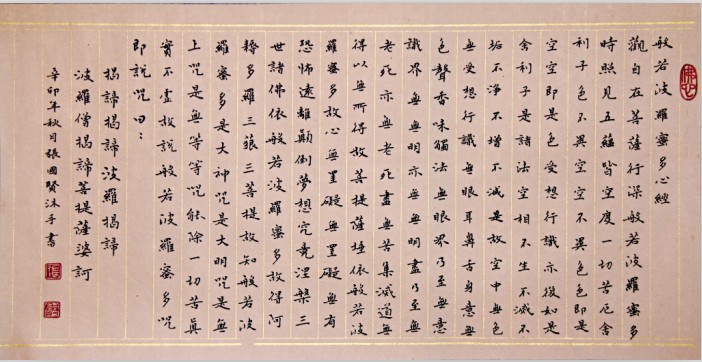 佛心
般若波羅蜜多心經
觀自在菩薩行深般若波羅蜜多
時照見五蘊皆空度一切苦厄舍
利子色不異空空不異色色即是
空空即是色受想行識亦復如是
舍利子是諸法空相不生不滅不
垢不淨不增不減是故空中無色
無受想行識無眼耳鼻舌身意無
色聲香味觸法無眼界乃至無意
識界無無明亦無無明盡乃至無
老死亦無老死盡無苦集滅道無
得以無所得故菩提薩埵依般若波
羅蜜多故心無罣礙無罣礙無有
恐怖遠離顛倒夢想究竟涅槃三
世諸佛依般若波羅蜜多故得阿
耨多羅三藐三菩提故知般若波
羅蜜多是大神咒是大明咒是無
上咒是無等等咒能除一切苦真
實不虛故說般若波羅蜜多咒
即說咒曰：
揭諦揭諦波羅揭諦
波羅僧揭諦菩提薩婆訶
辛卯年秋月張國賢沐手書